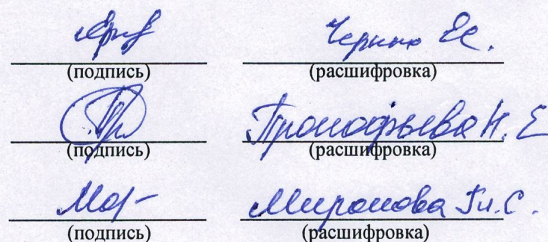 Черных Е.С.
(подпись) (расшифровка)
Прокофьева Н. Е
(подпись) (расшифровка)
Миронова Гл. С.
(подпись) (расшифровка)